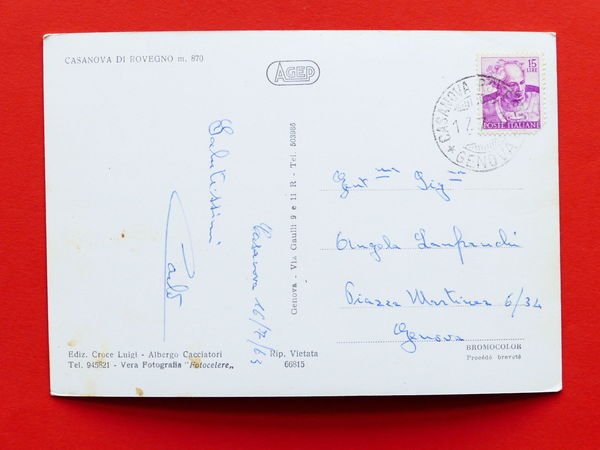 CASANOVA DI ROVEGNO m. 870
AGEP
15
LIRE
POSTE ITALIANE
CASANOVA
GENOVA
Salutissimi
Carlo
Casanova 16/7/63
Genova - Via Gaulli 9 e 11 R - Tel. 503985
Gent.ma Sig.na
Angela Lanfranchi
Piazza Martinez 6/34
Genova
Ediz. Croce Luigi - Albergo Cacciatori
Tel. 945821 - Vera Fotografia "Fotocelere„
Rip. Vietata
66815
BROMOCOLOR
Procédé breveté